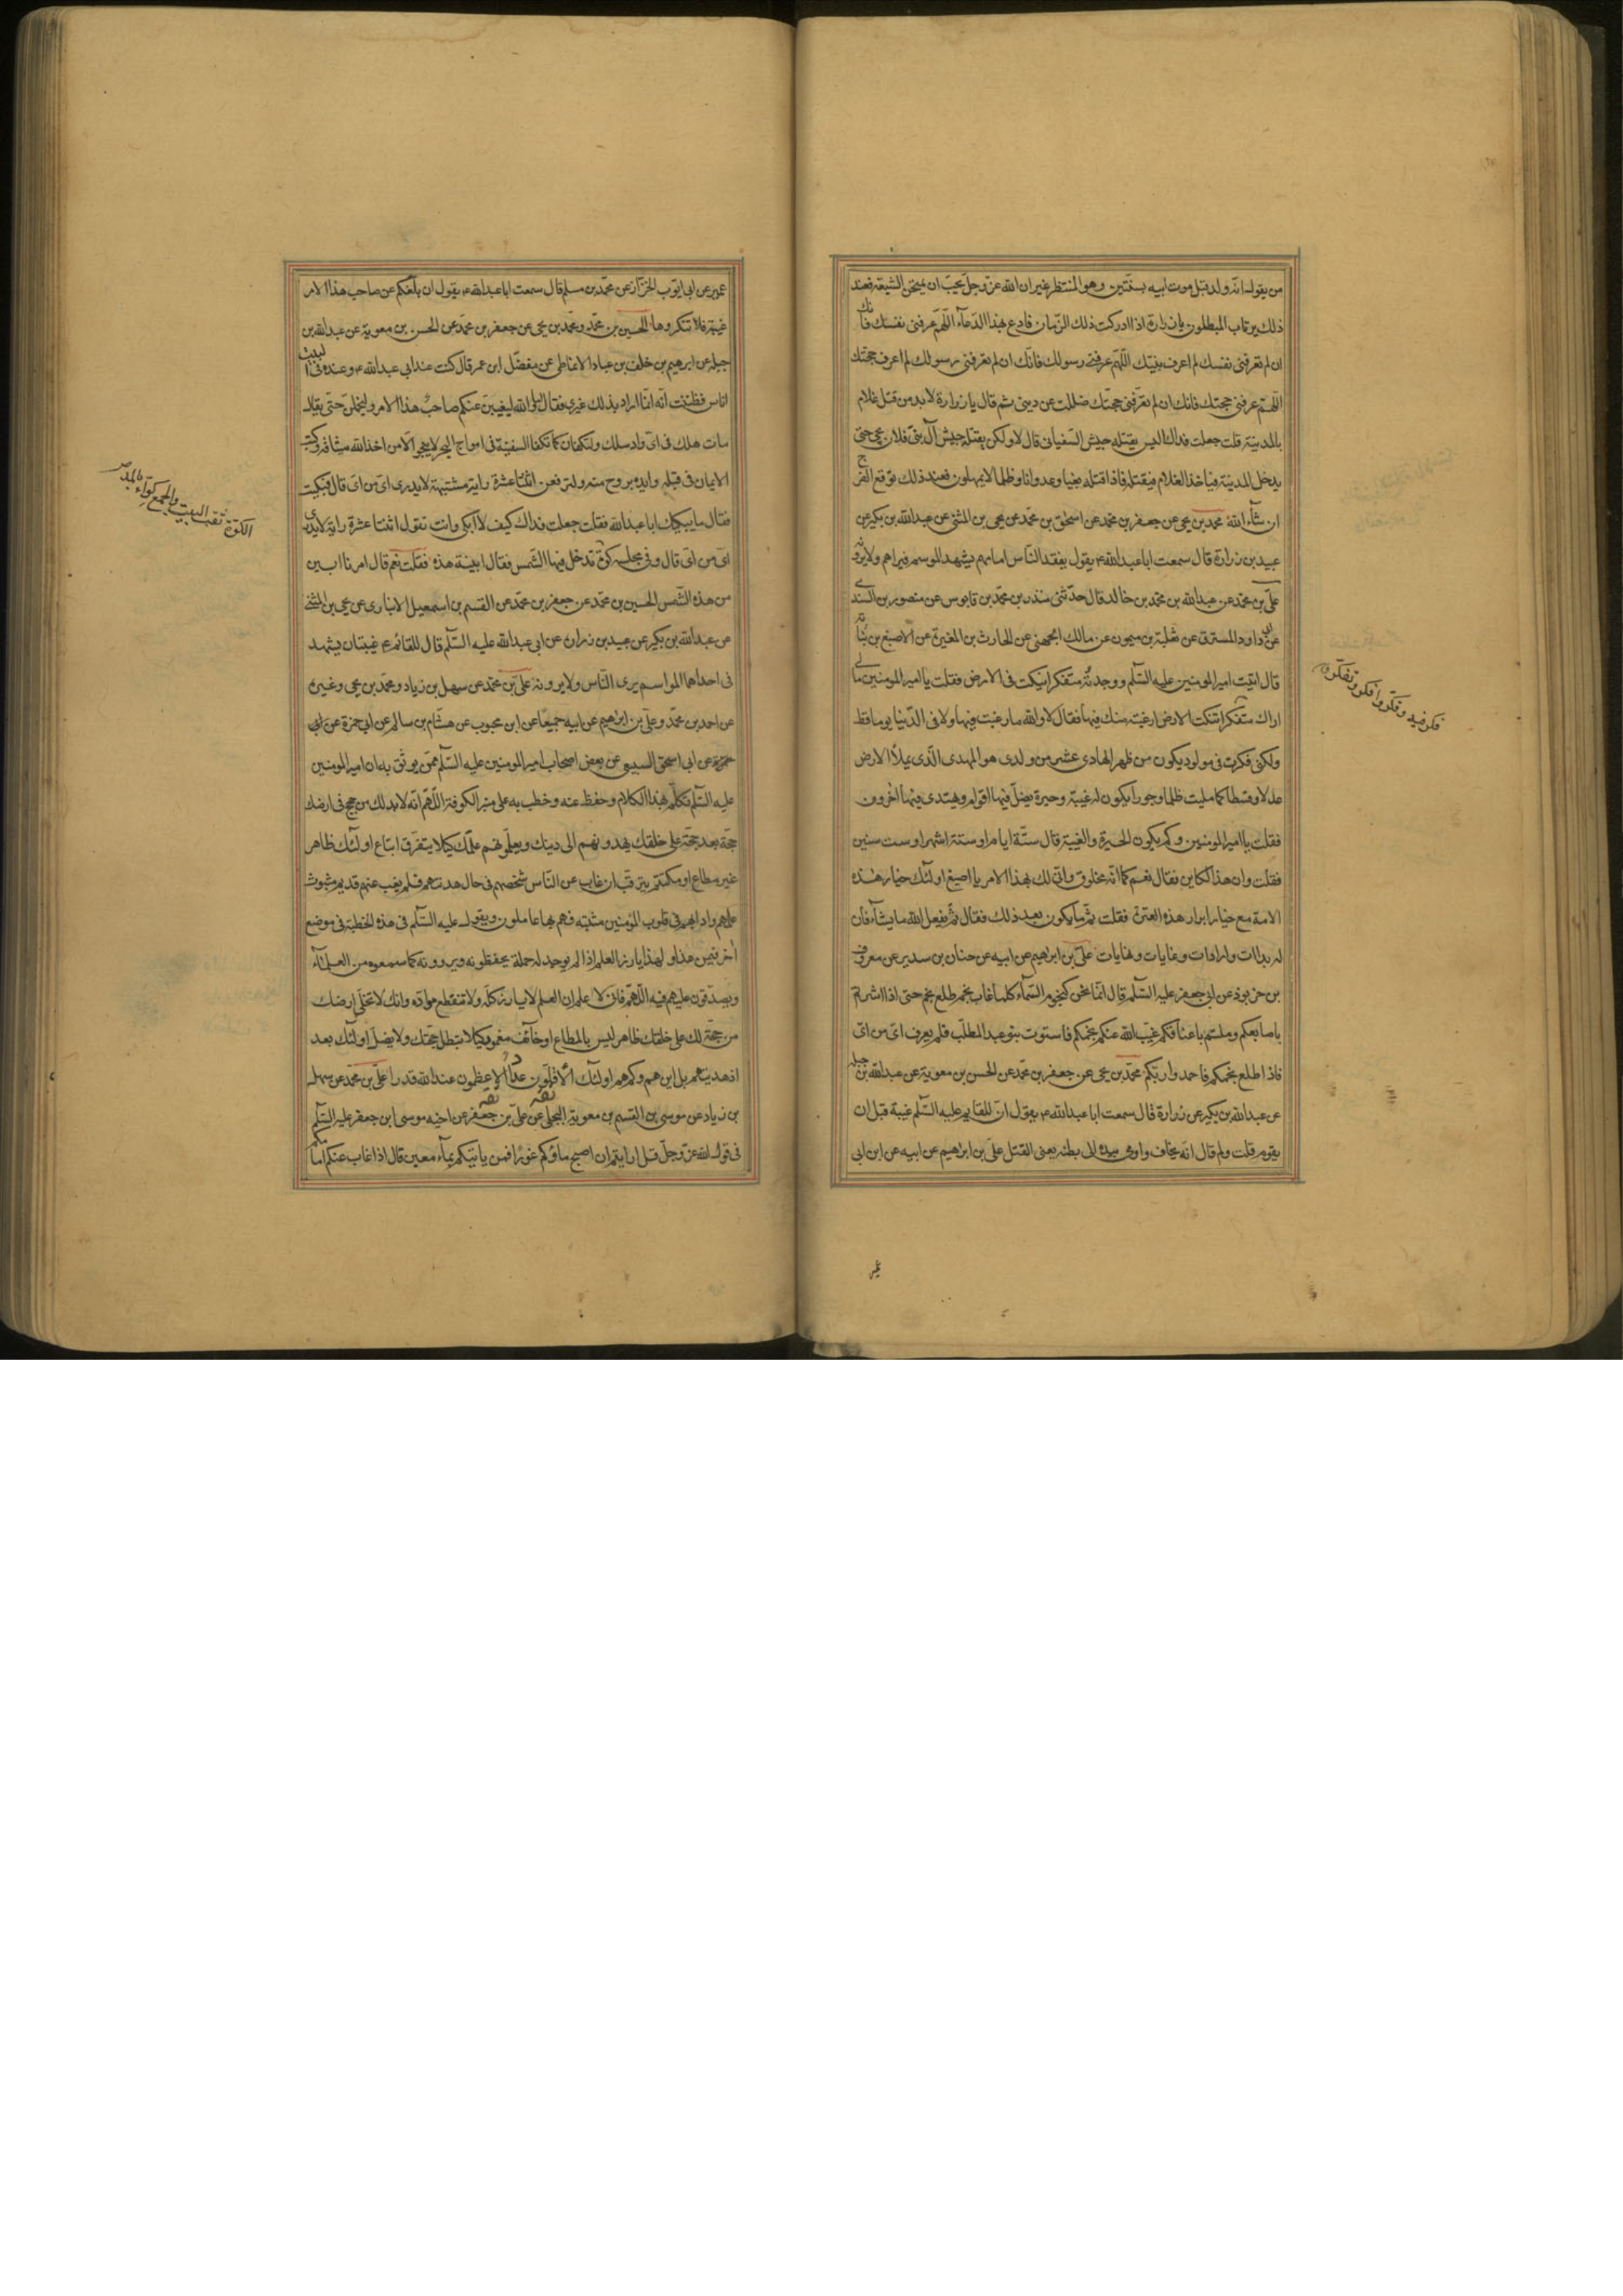 من يقول انه ولد قبل موت ابيه بسنتين وهو المنتظر غير ان الله عز وجل يحب ان يمتحن الشيعة فعند
ذلك يرتاب المبطلون يا زرارة اذا ادركت ذلك الزمان فادع بهذا الدعاء اللهم عرفنى نفسك فانك
ان لم تعرفنى نفسك لم اعرف نبيك اللهم عرفنى رسولك فانك ان لم تعرفنى رسولك لم اعرف حجتك
اللهم عرفنى حجتك فانك ان لم تعرفنى حجتك ضللت عن دينى ثم قال يا زرارة لابد من قتل غلام
بالمدينة قلت جعلت فداك اليس يقتله جيش السفيانى قال لا ولكن يقتله جيش آل بنى فلان يجئ حتى
يدخل المدينة فياخذ الغلام فيقتله فاذا قتله بغيا وعدوانا وظلما لا يمهلون فعند ذلك توقع الفرج
ان شاء الله محمد بن يحيى عن جعفر بن محمد عن اسحق بن محمد عن يحيى بن المثنى عن عبدالله بن بكير عن
عبيد بن زرارة قال سمعت ابا عبدالله ع يقول يفقد الناس امامهم يشهد الموسم فيراهم ولا يرونه
على بن محمد عن عبدالله بن محمد بن خالد قال حدثنى منذر بن محمد بن قابوس عن منصور بن السندى
عن ابى داود المسترق عن ثعلبة بن ميمون عن مالك الجهنى عن الحارث بن المغيرة عن الاصبغ بن نباته
قال اتيت امير المومنين عليه السلم فوجدته متفكرا ينكت فى الارض فقلت يا امير المومنين مالى
اراك متفكرا تنكت الارض ارغبة منك فيها فقال لا والله ما رغبت فيها ولا فى الدنيا يوما قط
ولكنى فكرت فى مولود يكون من ظهر الحادى عشر من ولدى هو المهدى الذى يملأ الارض
عدلا وقسطا كما ملئت ظلما وجورا يكون له غيبة وحيرة يضل فيها اقوام ويهتدى فيها اخرون
فقلت يا امير المومنين وكم يكون الحيرة والغيبة قال ستة ايام او ستة اشهر او ست سنين
فقلت وان هذا لكاين فقال نعم كما انه مخلوق وانى لك بهذا الامر يا اصبغ اولئك خيار هذه
الامة مع خيار ابرار هذه العترة فقلت ثم ما يكون بعد ذلك فقال ثم يفعل الله ما يشاء فان
له بداات وارادات وغايات ونهايات على بن ابرهيم عن ابيه عن حنان بن سدير عن معروف
بن خربوذ عن ابى جعفر عليه السلم قال انما نحن كنجوم السماء كلما غاب نجم طلع نجم حتى اذا اشرتم
باصابعكم وملتم باعناقكم غيب الله عنكم نجمكم فاستوت بنو عبدالمطلب فلم يعرف اى من اى
فاذا طلع نجمكم فاحمدوا ربكم محمد بن يحيى عن جعفر بن محمد عن الحسن بن معوية عن عبدالله بن جبله
عن عبدالله بن بكير عن زرارة قال سمعت ابا عبدالله ع يقول ان للقايم عليه السلم غيبة قبل ان
يقوم قلت ولم قال انه يخاف واومى بيده الى بطنه يعنى القتل على بن ابرهيم عن ابيه عن ابن ابى
فكر فيه وفكر وافكر وتفكر
عمير عن ابى ايوب الخزاز عن محمد بن مسلم قال سمعت ابا عبدالله ع يقول ان بلغكم عن صاحب هذا الامر
غيبة فلا تنكروها الحسين بن محمد ومحمد بن يحيى عن جعفر بن محمد عن الحسن بن معوية عن عبدالله بن
جبله عن ابرهيم بن خلف بن عباد الانماطى عن مفضل ابن عمر قال كنت عند ابى عبدالله ع وعنده فى البيت
اناس فظننت انه انما اراد بذلك غيرى فقال اما والله ليغيبن عنكم صاحب هذا الامر وليخملن حتى يقال
مات هلك فى اى واد سلك ولتكفان كما تكفا السفينة فى امواج البحر لا ينجو الا من اخذ الله ميثاقه وكتب
الايمان فى قلبه وايده بروح منه ولترفعن اثنتا عشرة راية مشتبهة لا يدرى اى من اى قال فبكيت
فقال ما يبكيك ابا عبدالله فقلت جعلت فداك كيف لا ابكى وانت تقول اثنتا عشرة راية لا يدرى
اى من اى قال وفى مجلسه كوة تدخل فيها الشمس فقال ابينة هذه فقلت نعم قال امرنا ابين
من هذه الشمس الحسين بن محمد عن جعفر بن محمد عن القسم بن اسمعيل الانبارى عن يحيى بن المثنى
عن عبدالله بن بكير عن عبيد بن زرارة عن ابى عبدالله عليه السلم قال للقائم ع غيبتان يشهد
فى احداهما المواسم يرى الناس ولا يرونه على بن محمد عن سهل بن زياد ومحمد بن يحيى وغيره
عن احمد بن محمد وعلى بن ابرهيم عن ابيه جميعا عن ابن محبوب عن هشام بن سالم عن ابى حمزة عن ابى
حمزة عن ابى اسحق السبيعى عن بعض اصحاب امير المومنين عليه السلم ممن يوثق به ان امير المومنين
عليه السلم تكلم بهذا الكلام وحفظ عنه وخطب به على منبر الكوفة اللهم انه لابد لك من حجج فى ارضك
حجة بعد حجة على خلقك يهدونهم الى دينك ويعلمونهم علمك كيلا يتفرق اتباع اولئك ظاهر
غير مطاع او مكتتم يترقب ان غاب عن الناس شخصهم فى حال هدنتهم فلم يغب عنهم قديم مبثوث
علمهم وادابهم فى قلوب المؤمنين مثبته فهم بها عاملون ويقول عليه السلم فى هذه الخطبة فى موضع
آخر فيمن هذا ولهذا يارز العلم اذا لم يوجد له حملة يحفظونه ويروونه كما سمعوه من العلماء
ويصدقون عليهم فيه اللهم فانى لا علم ان العلم لا يارز كله ولا تنقطع مواده وانك لا تخلى ارضك
من حجة لك على خلقك ظاهر ليس بالمطاع او خائف مغمور كيلا تبطل حجتك ولا يضل اولئك بعد
اذ هديتهم بل اين هم وكم هم اولئك الاقلون عددا الاعظمون عند الله قدرا على بن محمد عن سهل
بن زياد عن موسى بن القسم بن معوية البجلى عن على بن جعفر عن اخيه موسى ابن جعفر عليه السلم
فى قول الله عز وجل قل ارايتم ان اصبح ماؤكم غورا فمن ياتيكم بماء معين قال اذا غاب عنكم امامكم
الكوة ثقب البيت والجمع كواء بالمد